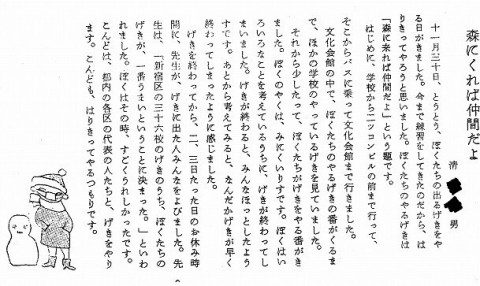 森にくれば仲間だよ
清 男
十一月三十日、とうとう、ぼくたちの出るげきをや
る日がきました。今まで練習をしてきたのだから、は
りきってやろうと思いました。ぼくたちのやるげきは
「森に来れば仲間だよ」という題です。
はじめに、学校から二ツコンビルの前まで行って、
そこからバスに乗って文化会館まで行きました。
文化会館の中で、ぼくたちのやるげきの番がくるま
で、ほかの学校のやっているげきを見ていました。
それから少したって、ぼくたちがげきをやる番がき
ました。ぼくのやくは、みにくいりすです。ぼくはい
ろいろなことを考えているうちに、げきが終わってし
まいました。げきが終わると、みんなほっとしたよう
すです。あとから考えてみると、なんだかげきが早く
終わってしまったように感じました。
げきを終わってから、二、三日たった日のお休み時
間に、先生が、げきに出た人みんなをよびました。先
生は、「新宿区の三十六校のげきのうち、ぼくたちの
げきが、一番うまいということに決まった。」といわ
れました。ぼくはその時、すごくうれしかったです。
こんどは、都内の各区の代表の人たちと、げきをやり
ます。こんども、はりきってやるつもりです。